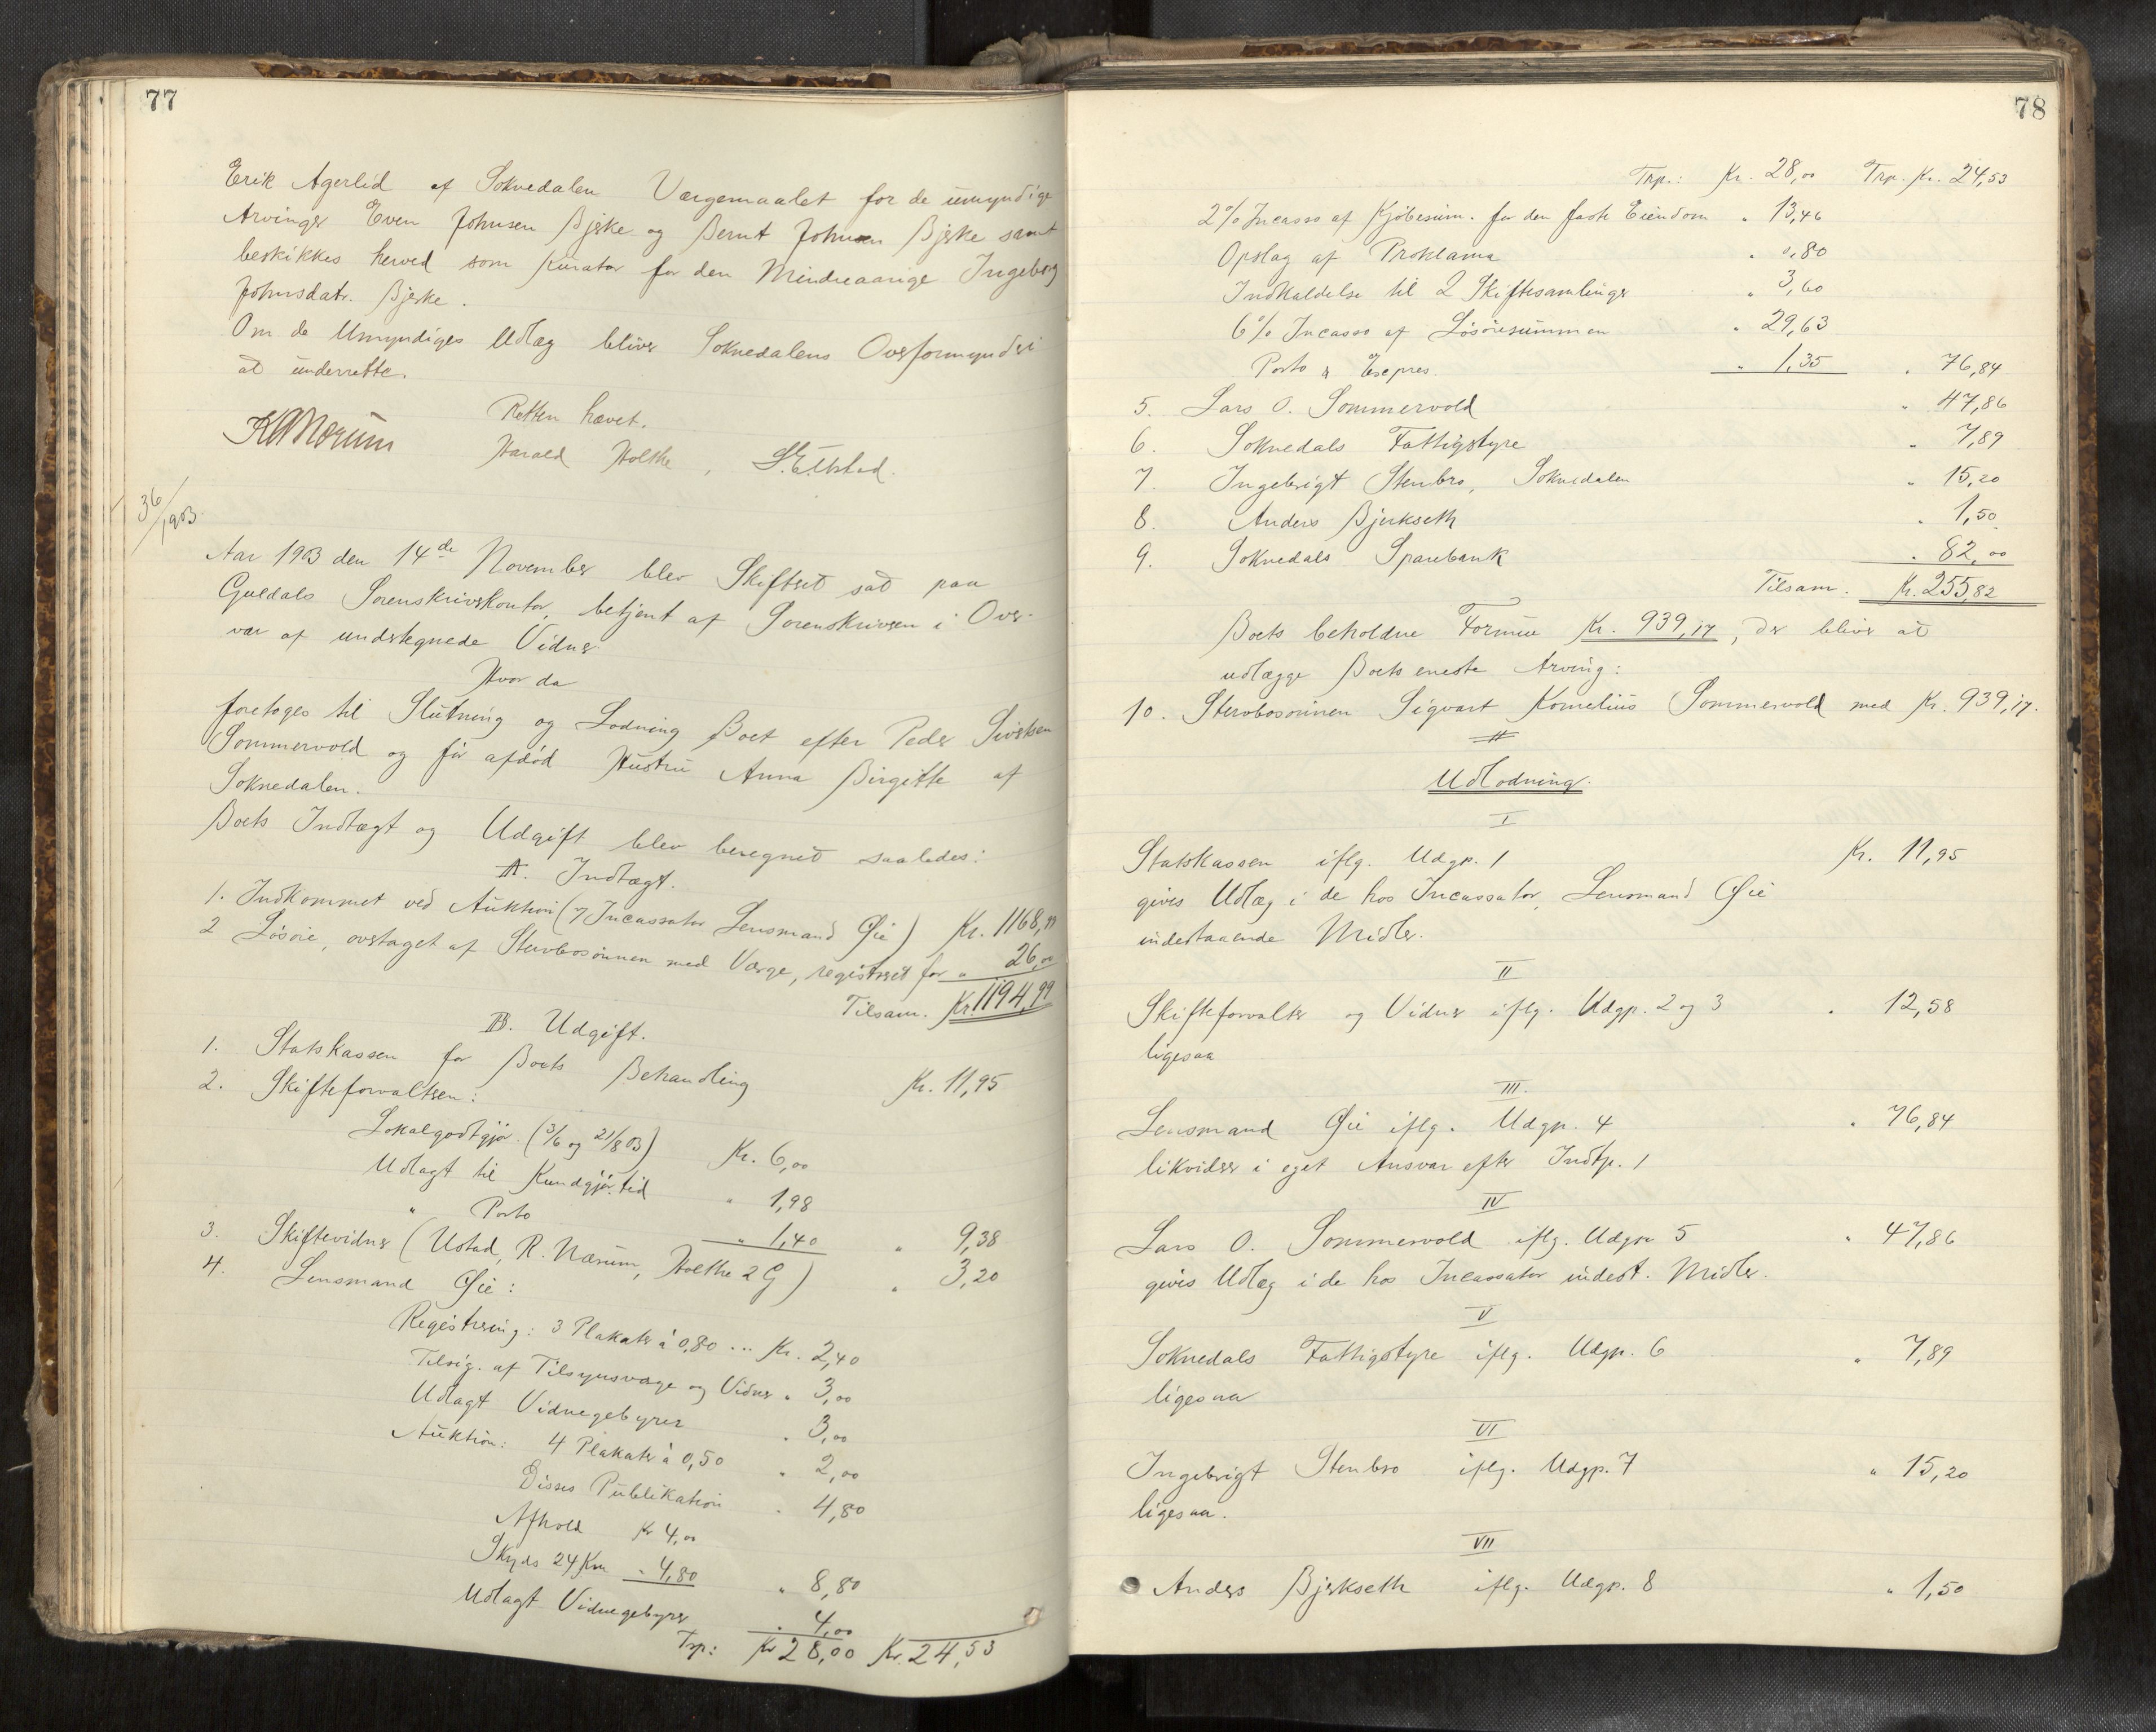 77
Erik Agerlid af Soknedalen Værgemaalet for de umyndige
Arvinger Even Johnsen Bjerke og Bernt Johnsen Bjerke samt
beskikkes herved som Kurator for den Mindreaarige Ingeborg
Johnsdatr. Bjerke.
Om de Umyndiges Udlæg bliver Soknedalens Overformynderi
at underrette.
Retten hævet.
Harald Holthe,
36/1903.
Aar 1903 den 14de November blev Skifteret sat paa
Guldals Sorenskriverkontor, betjent af Sorenskriveren i Over-
vær af undertegnede Vidner
Hvor da
foretoges til Slutning og Lodning Boet efter Peder Sivertsen
Sommervold og før afdød Hustru Anna Birgitte af
Soknedalen.
Boets Indtægt og Udgift blev beregnet saaledes:
A. Indtægt.
1. Indkommet ved Auktion (Incassator Lensmand Øie) Kr. 1168,99
2 Løsøre, overtaget af Stervbosønnen med Værge, registreret for " 26,00
Tilsam. Kr. 1194,99
B. Udgift.
1. Statskassen for Boets Behandling Kr. 11,95
2. Skifteforvalteren:
Lokalgodtgjør. (3/6 og 21/8 03) Kr. 6,00
Udlagt til Kundgjør. tid " 1,98
" Porto " 1,40 " 9,38
3. Skiftevidner (Ustad, R. Nærum, Holthe 2 G) " 3,20
4. Lensmand Øie:
Registrering: 3 Plakater à 0,80 ... Kr. 2,40
Tilsig. af Tilsynsværge og Vidner " 3,00
Udlagt Vidnegebyrer " 3,00
Auktion: 4 Plakater à 0,50 " 2,00
Disses Publikation " 4,80
Afhold Kr 4,00
Skyds 24 Km " 4,80 " 8,80
Udlagt Vidnegebyrer " 4,00
Trp: Kr 28,00 Kr. 24,53
78
Trp.: Kr. 28,00 Trp. Kr. 24,53
2% Incasso af Kjøbesum. for den faste Eiendom " 13,46
Opslag af Proklama " 0,80
Indkaldelse til 2 Skiftesamlinger " 3,60
6% Incasso af Løsøresummen " 29,63
Porto & Expres. " 1,35 " 76,84
5. Lars O. Sommervold " 47,86
6. Soknedals Fattigstyre " 7,89
7. Ingebrigt Stenbro, Soknedalen " 15,20
8. Anders Bjerkseth " 1,50
9. Soknedals Sparebank " 82,00
Tilsam. Kr. 255,82
Boets beholdne Formue Kr. 939,17, der bliver at
udlægge Boets eneste Arving:
10. Stervbosønnen Sigvart Kornelius Sommervold med Kr. 939,17.
Udlodning.
I
Statskassen iflg. Udgp. 1 Kr. 11,95
gives Udlæg i de hos Incassator, Lensmand Øie
indestaaende Midler.
II
Skifteforvalter og Vidner iflg. Udgp. 2 og 3 " 12,58
ligesaa
III.
Lensmand Øie iflg. Udgp. 4 " 76,84
likviderer i eget Ansvar efter Indtp. 1
IV
Lars O. Sommervold iflg. Udgp. 5 " 47,86
gives Udlæg i de hos Incassator indest. Midler.
V
Soknedals Fattigstyre iflg. Udgp. 6 " 7,89
ligesaa
VI
Ingebrigt Stenbro iflg. Udgp. 7 " 15,20
ligesaa.
VII
Anders Bjerkseth iflg. Udgp. 8 " 1,50